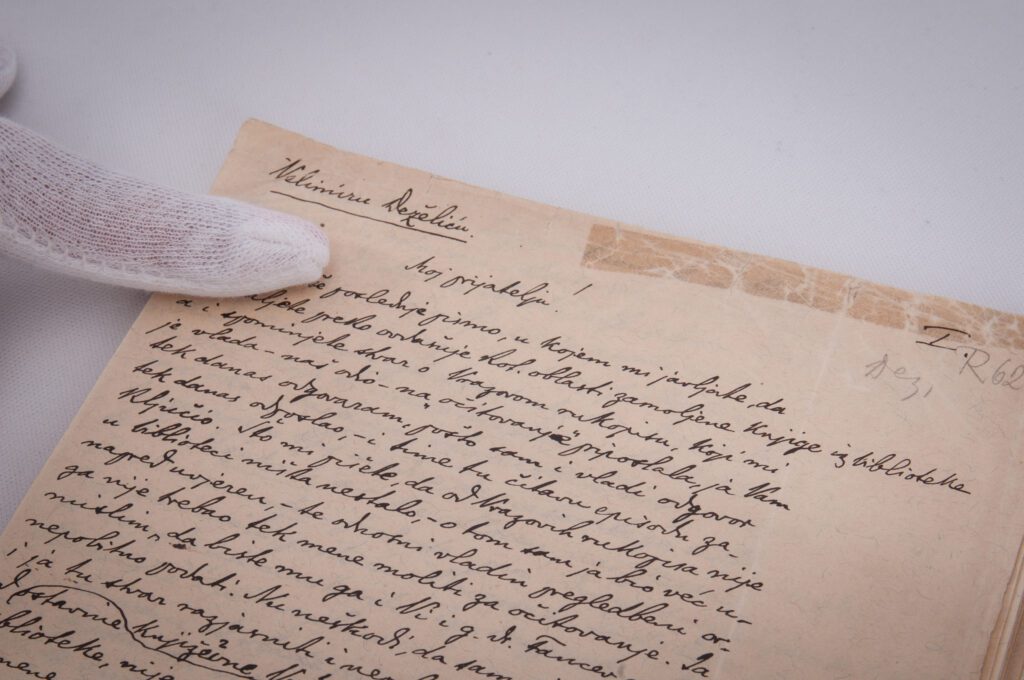 Velimiru Deželiću.
Moj prijatelju!
I. R 62
Dež,
poslednje pismo, u kojem mi javljate, da
šaljete preko ovdašnje kot. oblasti zamoljene knjige iz biblioteke
a i spominjete stvar o Vrazovom rukopisu, koji mi
je vlada – naš odio – na „očitovanje“ pripostala, ja Vam
tek danas odgovaram, pošto sam i vladi odgovor
tek danas odposlao, – i time tu čitavu episodu za-
ključio. Što mi pišete, da od Vrazovih rukopisa nije
u biblioteci ništa nestalo, – o tom sam ja bio već u-
napred uvjeren, – te odnosni vladin pregledbeni or-
gan nije trebao tek mene moliti za očitovanje. Ja
mislim, da biste mu ga i Vi i g. dr. Fancev
nepolitno podati. Nu neškodi, da sam
i ja tu stvar razjasnih i
Ostavine književne
biblioteke, nije
mene